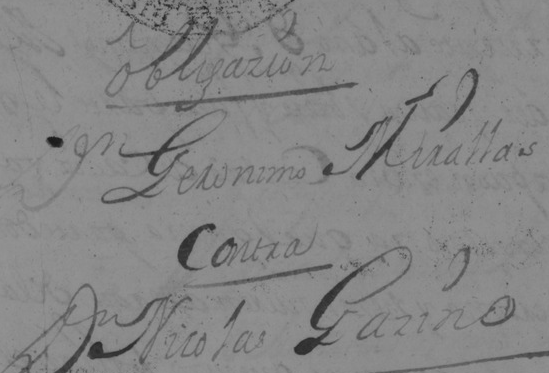 Obligazion
Dn Geronimo Mirallas
Contra
Dn Nicolas Gazino